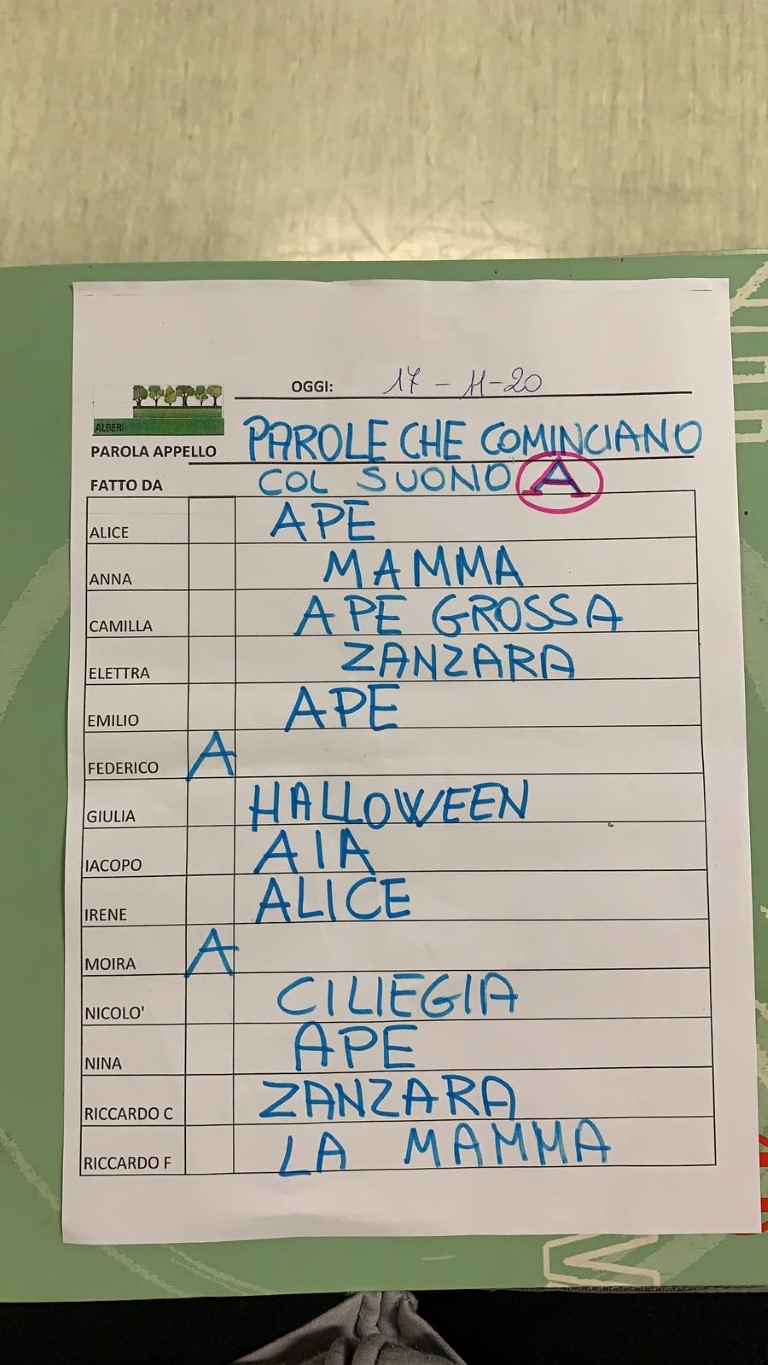 OGGI: 17-11-20
ALBERI
PAROLA APPELLO PAROLE CHE COMINCIANO
FATTO DA COL SUONO A
ALICE APE
ANNA MAMMA
CAMILLA APE GROSSA
ELETTRA ZANZARA
EMILIO APE
FEDERICO A
GIULIA HALLOWEEN
IACOPO AIA
IRENE ALICE
MOIRA A
NICOLO' CILIEGIA
NINA APE
RICCARDO C ZANZARA
RICCARDO F LA MAMMA